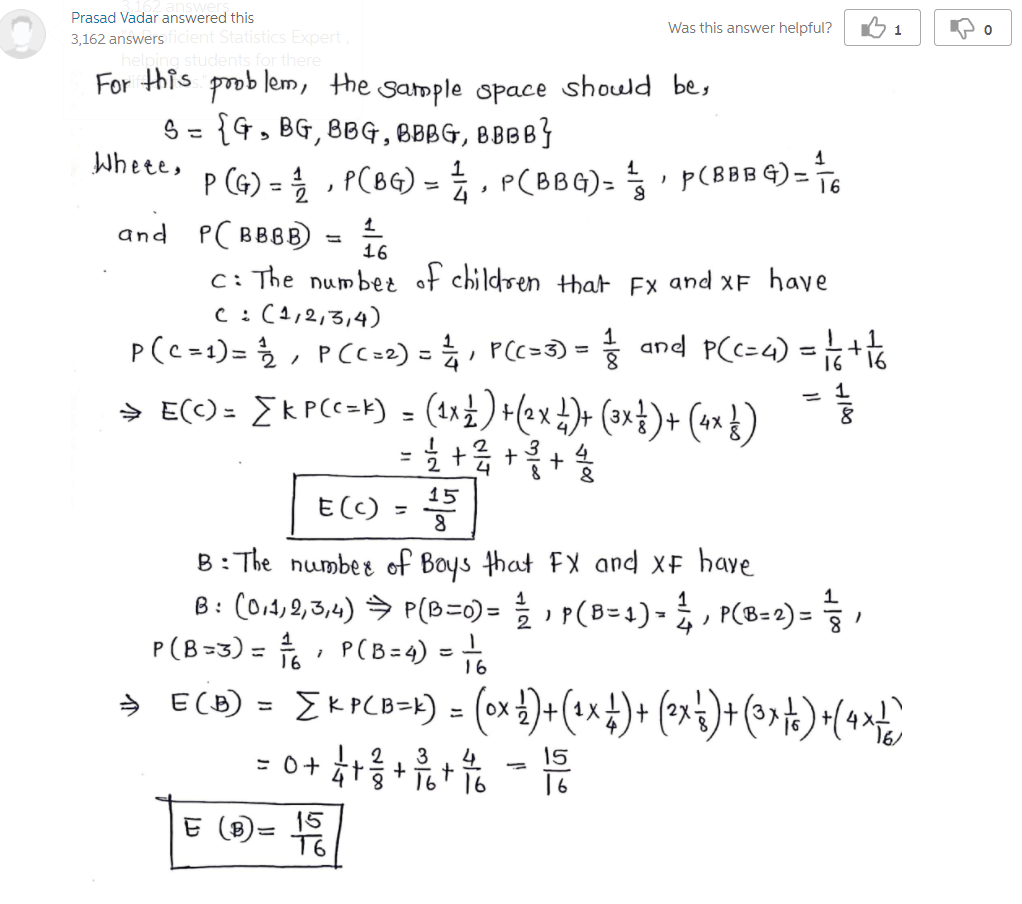 3,162 answers
Prasad Vadar answered this
Was this answer helpful? 1 0
3,162 answers ficient Statistics Expert,
helping students for there
For this problem, the sample space should be,
S = {G, BG, BBG, BBBG, BBBB}
Where,
P(G) = 1/2 , P(BG) = 1/4 , P(BBG) = 1/8 , P(BBBG) = 1/16
and P(BBBB) = 1/16
C : The number of children that FX and XF have
C : (1,2,3,4)
P(C=1) = 1/2 , P(C=2) = 1/4 , P(C=3) = 1/8 and P(C=4) = 1/16 + 1/16
= 1/8
⇒ E(C) = ∑ K P(C=K) = (1x1/2) + (2x1/4) + (3x1/8) + (4x1/8)
= 1/2 + 2/4 + 3/8 + 4/8
E(C) = 15/8
B : The number of Boys that FX and XF have
B : (0,1,2,3,4) ⇒ P(B=0) = 1/2 , P(B=1) = 1/4 , P(B=2) = 1/8 ,
P(B=3) = 1/16 , P(B=4) = 1/16
⇒ E(B) = ∑ K P(B=K) = (0x1/2) + (1x1/4) + (2x1/8) + (3x1/16) + (4x1/16)
= 0 + 1/4 + 2/8 + 3/16 + 4/16 = 15/16
E (B) = 15/16